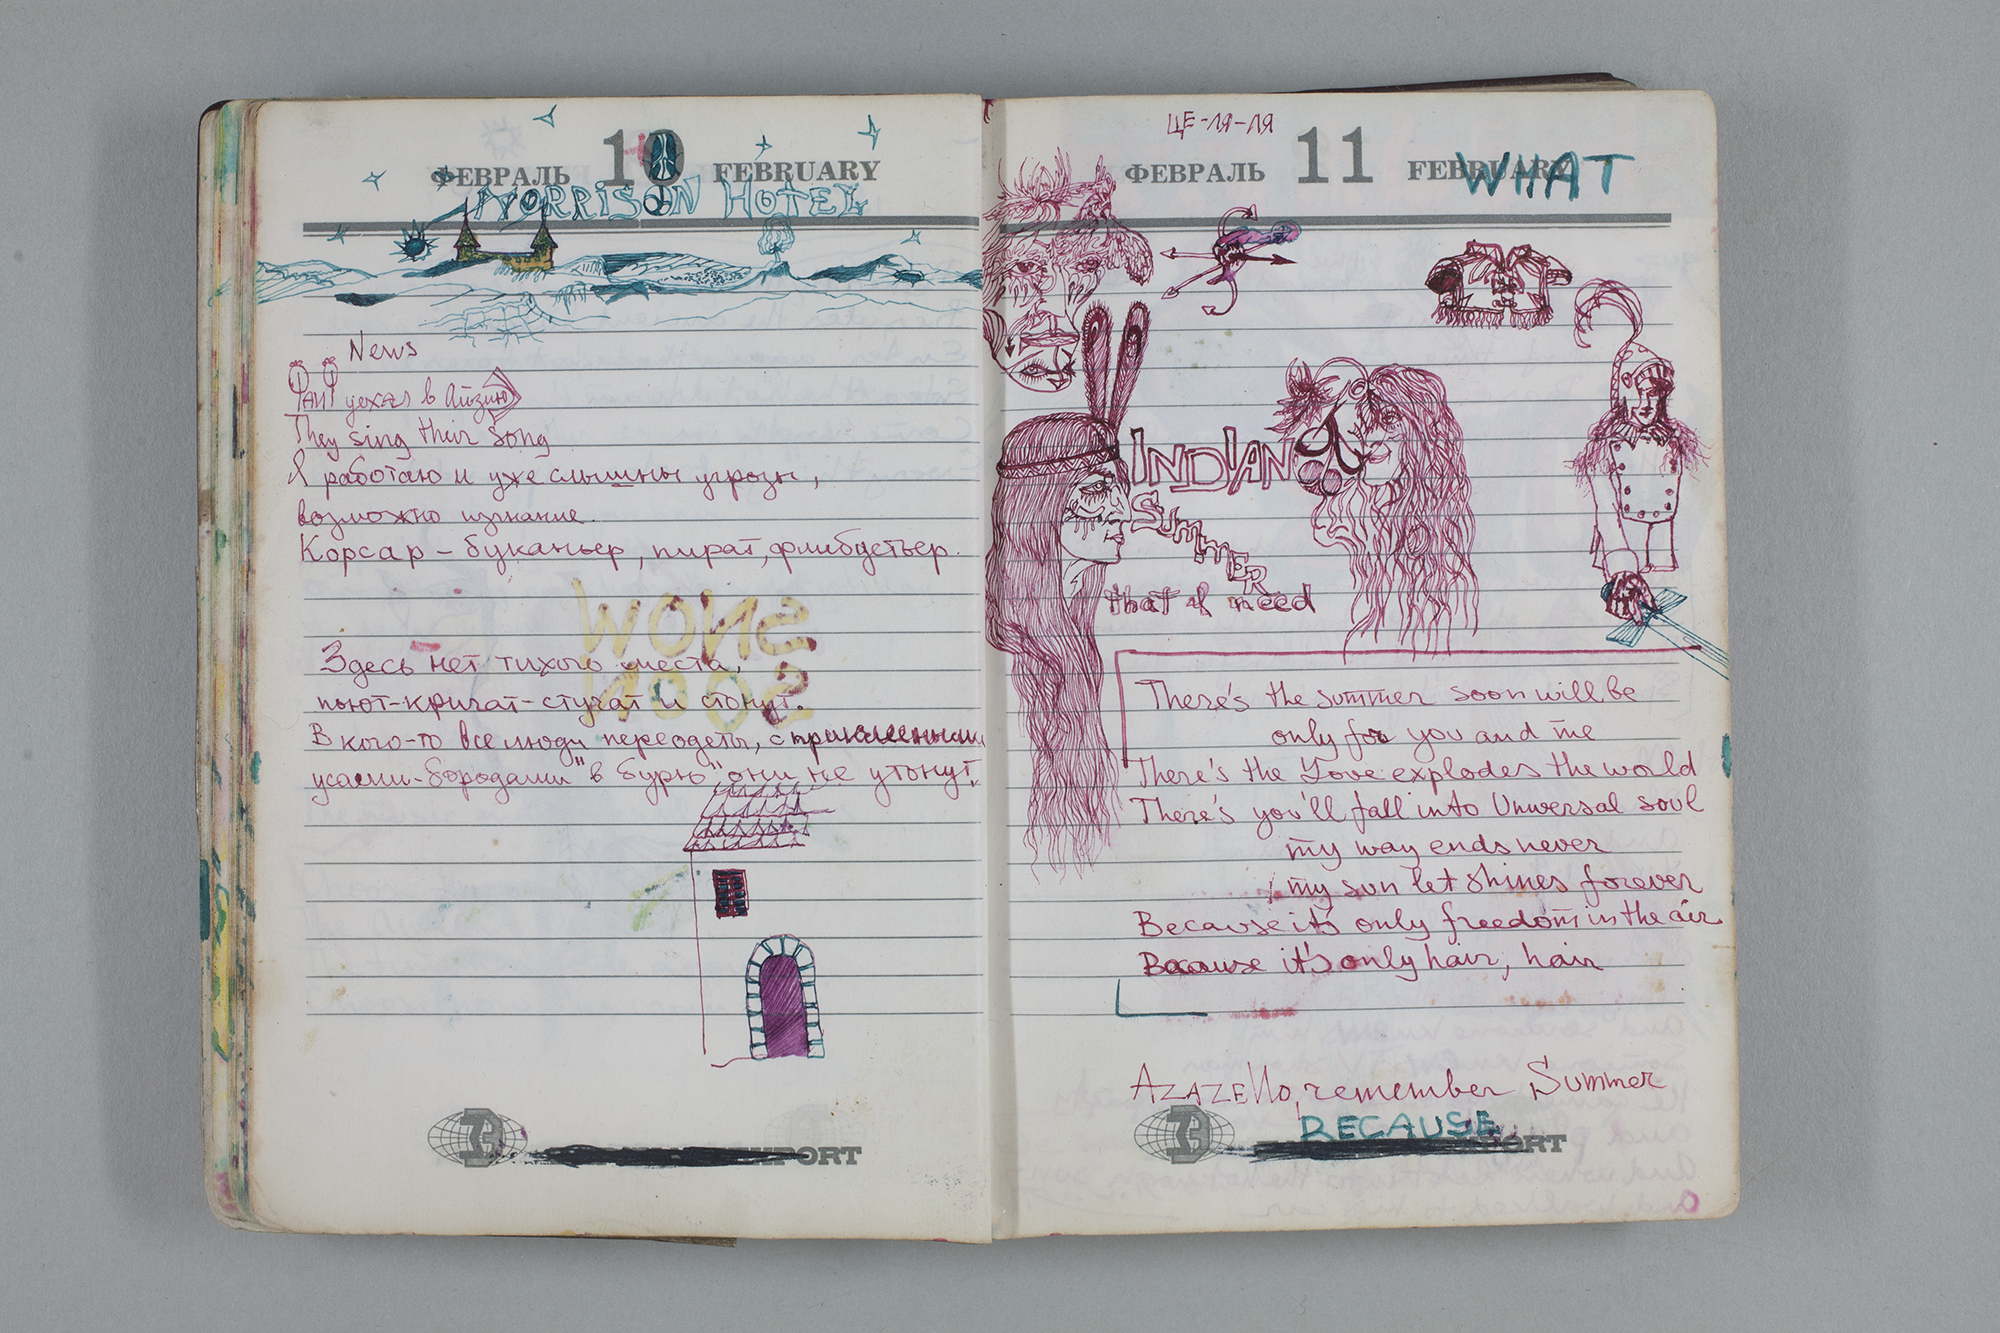 ФЕВРАЛЬ 10 FEBRUARY
MORRISON HOTEL
News
уехал в Айзию
They sing their song
Я работаю и уже слышны угрозы,
возможно изгнание.
Корсар – буканьер, пират, флибустьер.
SNOW
SOON
Здесь нет тихого места,
пьют-кричат-стучат и стонут.
В кого-то все люди переодеты, с приклеенными
усами-бородами "в бурю" они не утонут.
EXPORT
ЦЕ-ЛЯ-ЛЯ
ФЕВРАЛЬ 11 FEBRUARY
WHAT
INDIAN
SUMMER
that I need
There's the summer soon will be
only for you and me
There's the Love explodes the world
There's you'll fall into Universal soul
my way ends never
my sun let shines forever
Because it's only freedom in the air
Because it's only hair, hair
AZAZELLO, remember Summer
BECAUSE
EXPORT